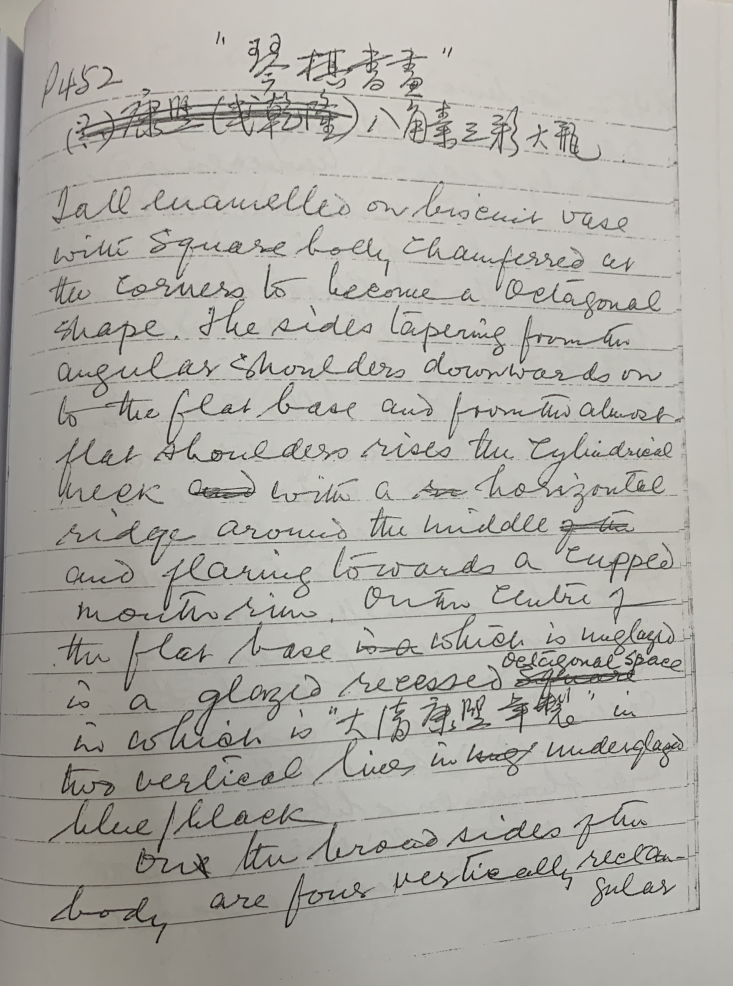 "琴棋書畫"
P452
(清)康熙(或乾隆)八角素三彩大瓶
Tall enamelled on biscuit vase
with Square body, Chamferred at
the corners to become a Octagonal
shape. The sides tapering from the
angular shoulders downwards on
to the flat base and from the almost
flat shoulders rises the cylindrical
neck and with a horizontal
ridge around the middle of the
and flaring towards a cupped
mouth rim. On the centre of
the flat base is a which is unglazed
octagonal space
is a glazed recessed square
in which is "大清康熙年製" in
two vertical lines in underglazed
blue/black
On the broad sides of the
body are four vertically rectan-
gular